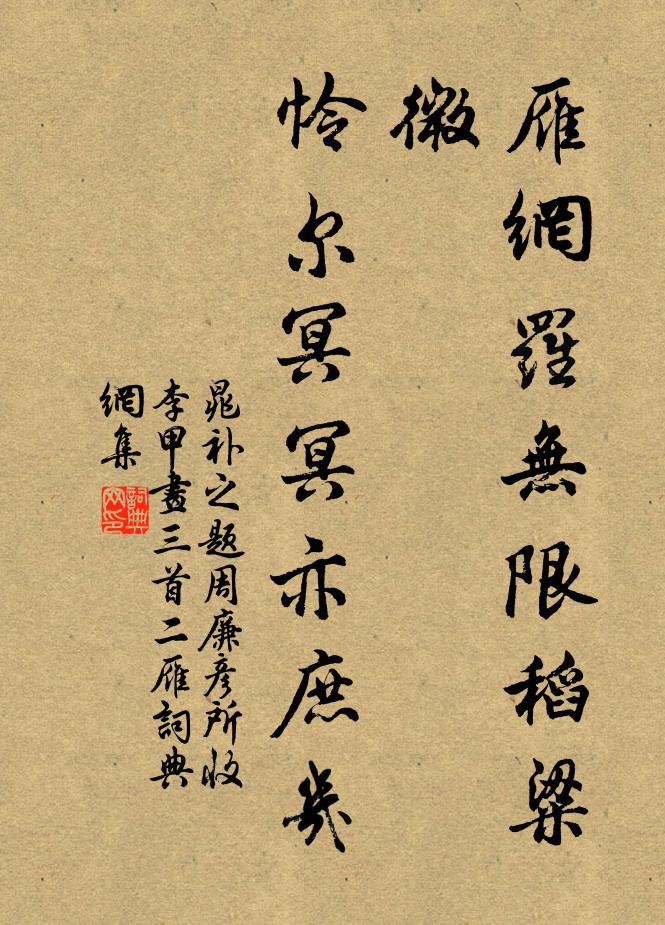 雁網羅無限稻梁
微
怜尔冥冥亦庶幾
晁补之题周廉彦所收
李甲畫三首二雁詞典
網集
詞典
网印